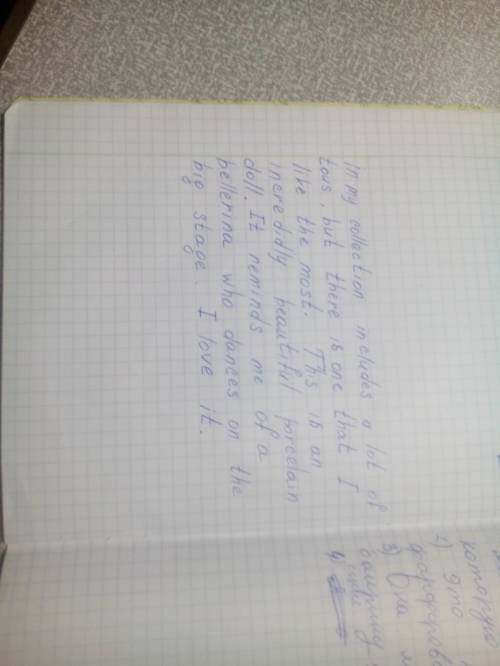 in my collection includes a lot of
tous, but there is one that I
like the most. This is an
incredidly beautiful porcelain
doll. It reminds me of a
bellerina who dances on the
big stage. I love it.
которую
2) это
фарфоров
3) Она
балерину
4)